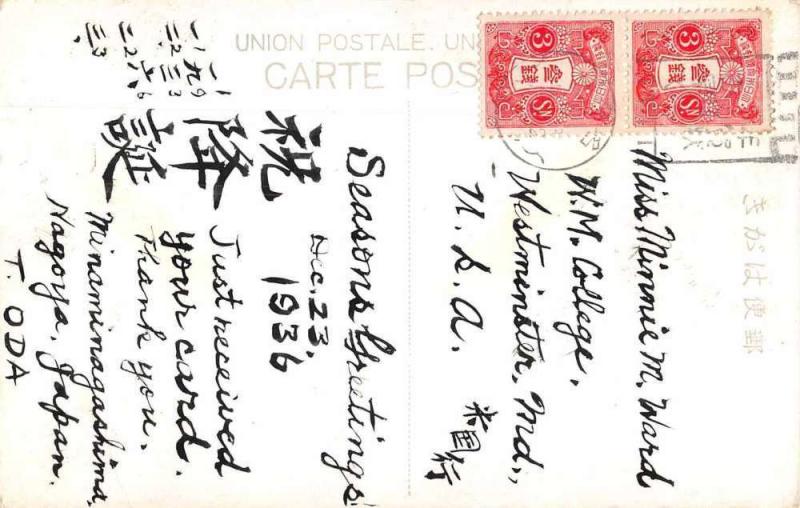 UNION POSTALE. UN
CARTE POS
きがは便郵
3
參錢
SN
3
參錢
SN
Miss Minnie M. Ward
W.M. College,
Westminster, Md.,
U. S. A.
米国行
Seasons Greetings!
Dec. 23,
1936
祝
降
誕
Just received
your card.
Thank you.
Minaminagashima,
Nagoya, Japan.
T. ODA